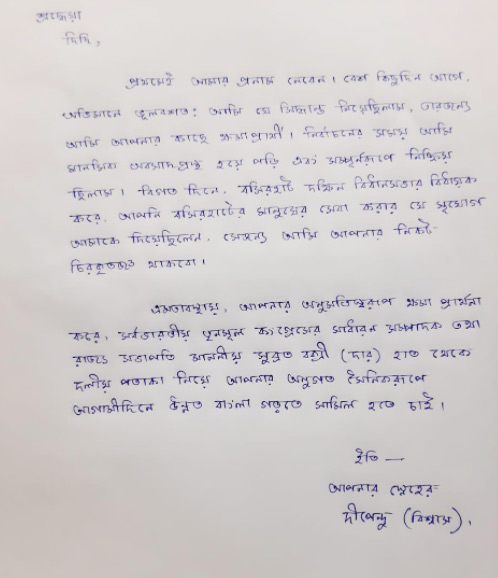 শ্রদ্ধেয়া
দিদি,
প্রথমেই আমার প্রনাম নেবেন। বেশ কিছুদিন আগে,
অভিমানে ভুলবশতঃ আমি যে সিদ্ধান্ত নিয়েছিলাম, তারজন্য
আমি আপনার কাছে ক্ষমাপ্রার্থী। নির্বাচনের সময় আমি
মানসিক অবসাদগ্রস্থ হয়ে পড়ি এবং সম্পূর্নরূপে নিষ্ক্রিয়
ছিলাম। বিগত দিনে, বসিরহাট দক্ষিন বিধানসভার বিধায়ক
করে, আপনি বসিরহাটের মানুষের সেবা করার যে সুযোগ
আমাকে দিয়েছিলেন, সেজন্য আমি আপনার নিকট
চিরকৃতজ্ঞ থাকবো।
এমতাবস্থায়, আপনার ক্ষমা প্রার্থনা
করে, সর্বভারতীয় তৃনমূল কংগ্রেসের সাধারন সম্পাদক তথা
রাজ্য সভাপতি মাননীয় সুব্রত বক্সী (দার) হাত থেকে
দলীয় পতাকা নিয়ে আপনার অনুগত সৈনিকরূপে
আগামীদিনে উন্নত বাংলা গড়তে সামিল হতে চাই।
ইতি —
আপনার স্নেহের
দীপেন্দু (বিশ্বাস).